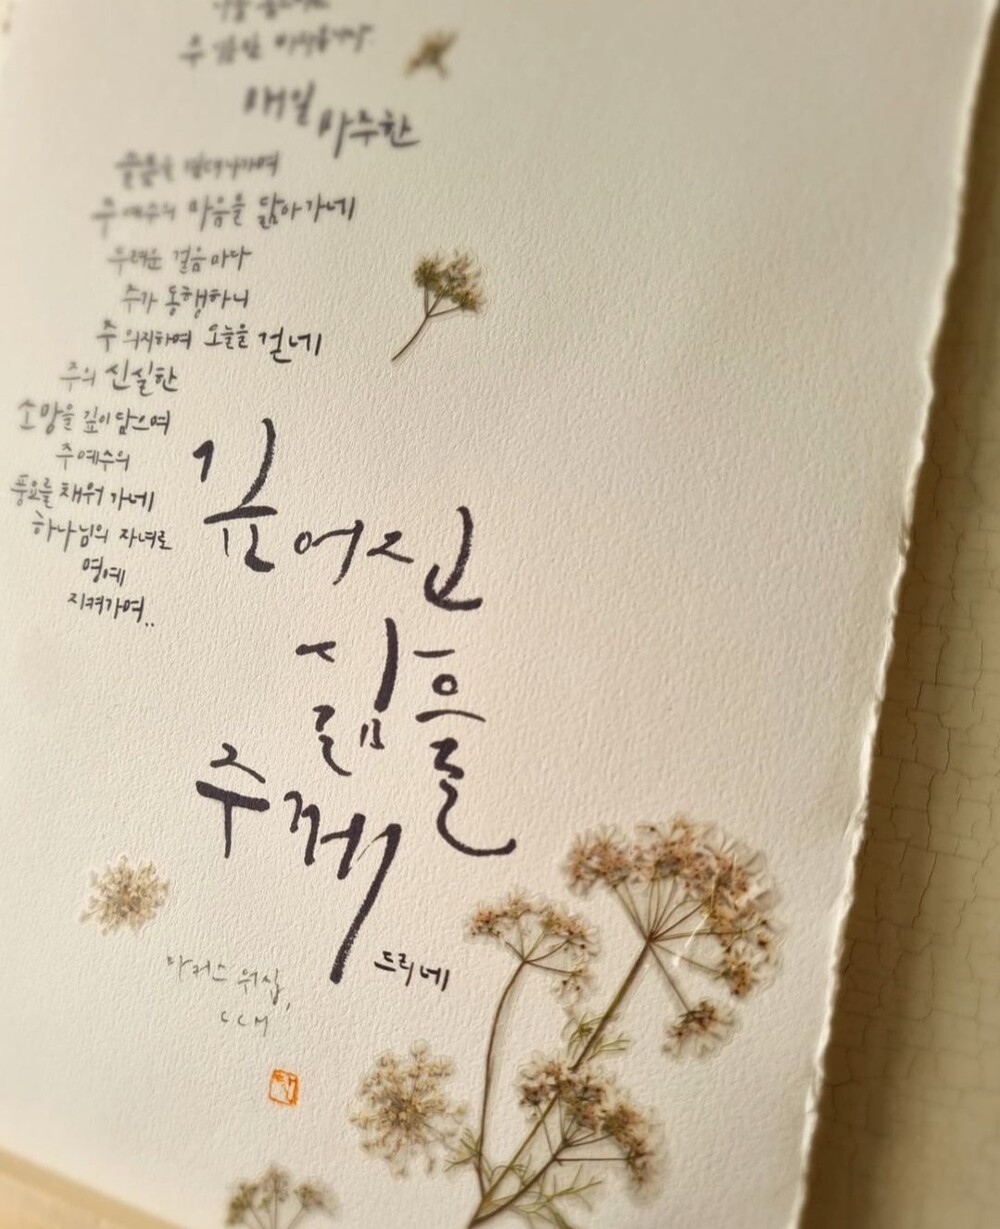 주
매일
마주한
슬픔을 견뎌가며
주 예수의 마음을 닮아가네
두려운 걸음마다
주가 동행하니
주 의지하여 오늘을 걷네
주의 신실한
소망을 깊이 담으며
주 예수의
풍요를 채워 가네
하나님의 자녀로
명예
지켜가며..
깊어진
짐들을
주께
드리네
마커스 워십,
CCM